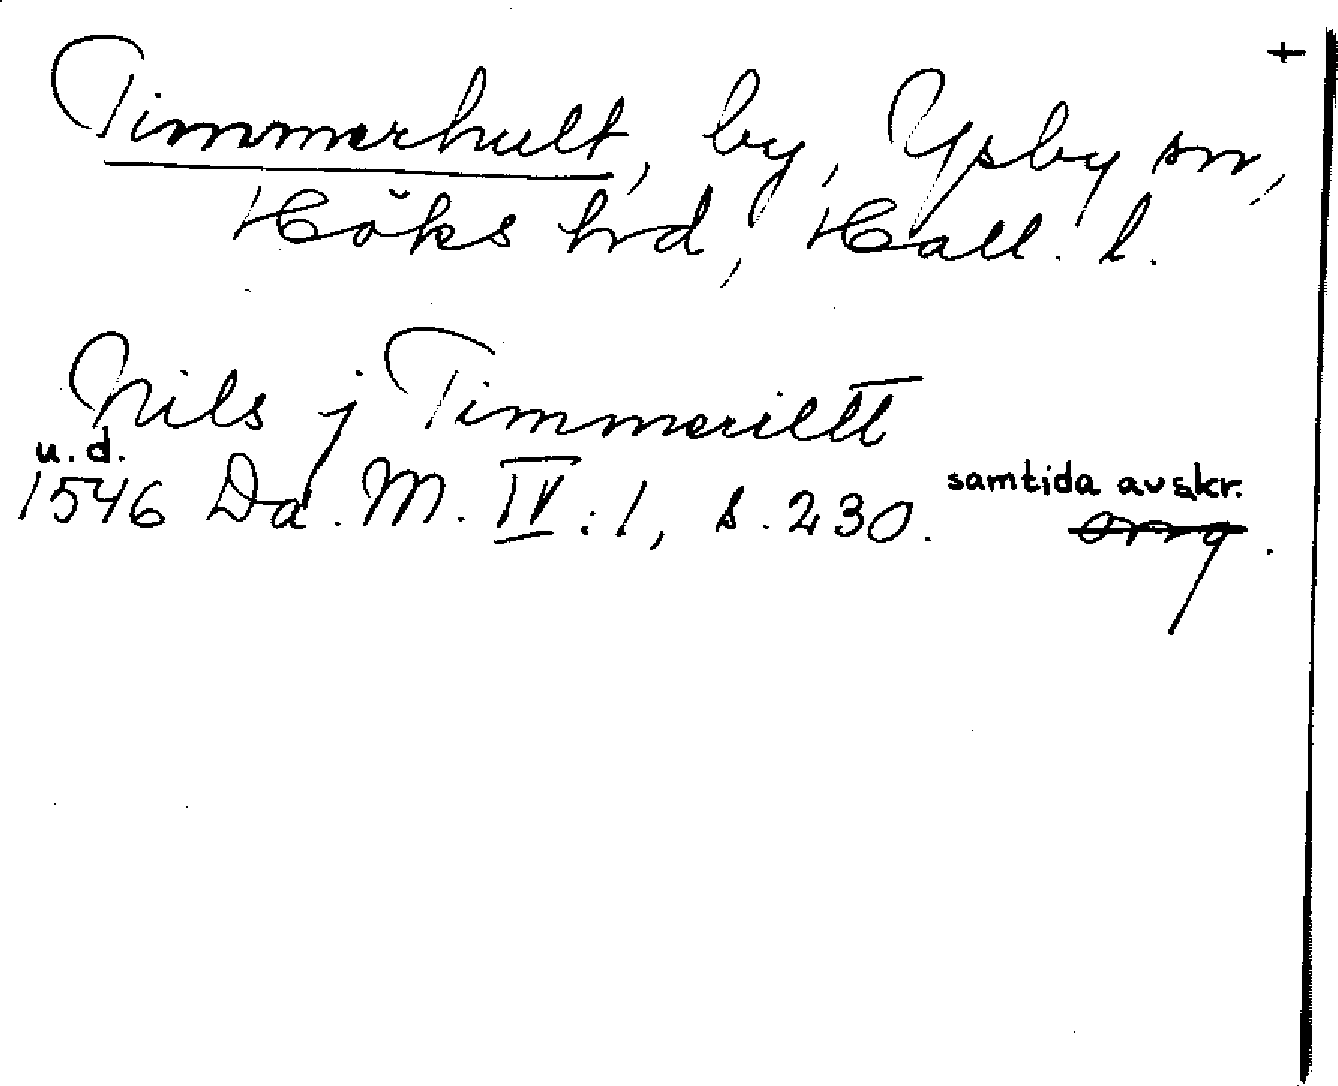 +
Timmerhult, by, Ysby sn,
Höks hrd, Hall. l.
Nils j Timmeriltt
u.d.
1546 Da. M. IV:1, s. 230. samtida avskr.
orig.